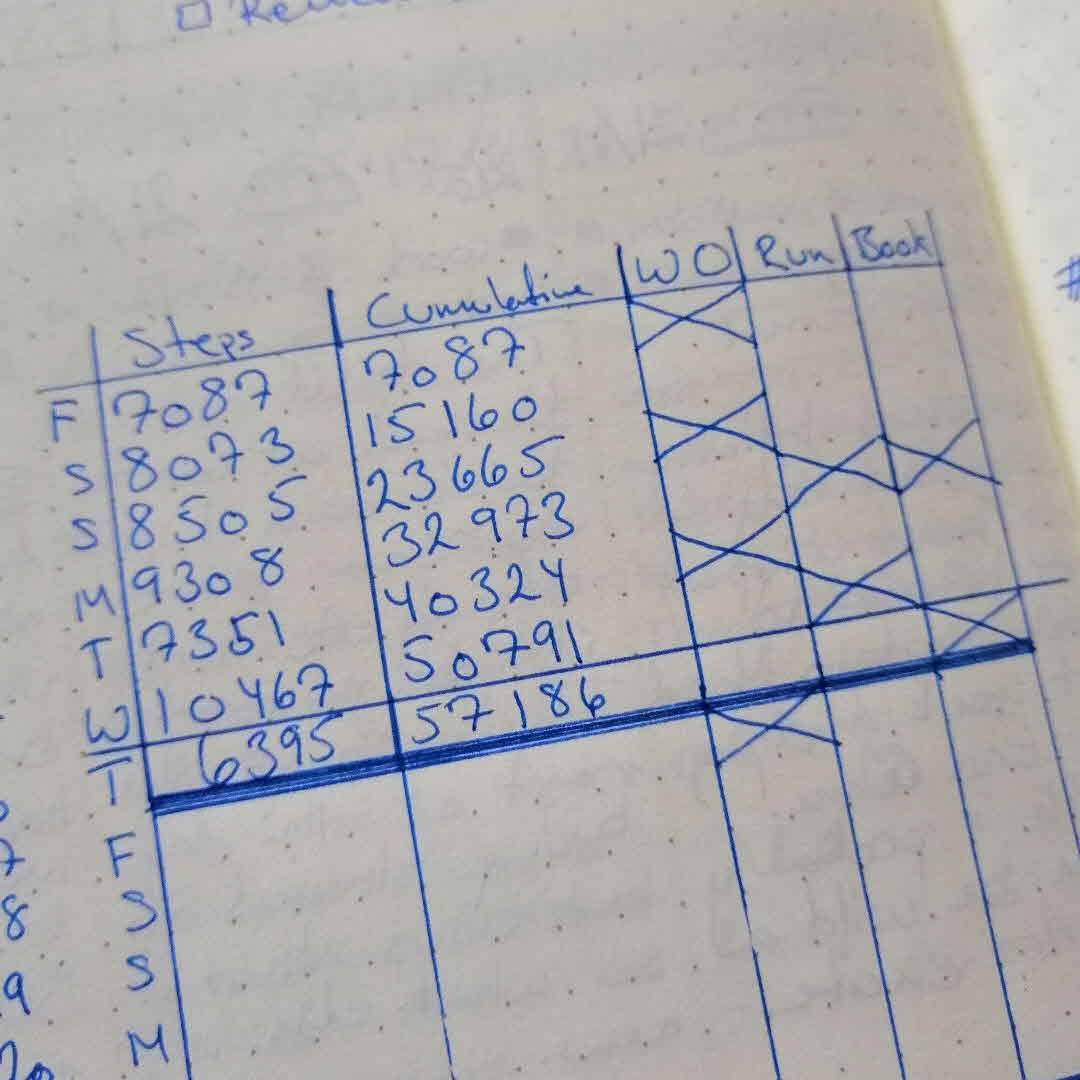 Steps Cumulative WO Run Book
F 7087 7087
S 8073 15160
S 8505 23665
M 9308 32973
T 7351 40324
W 10467 50791
T 6395 57186
7 F
8 S
9 S
20 M
#